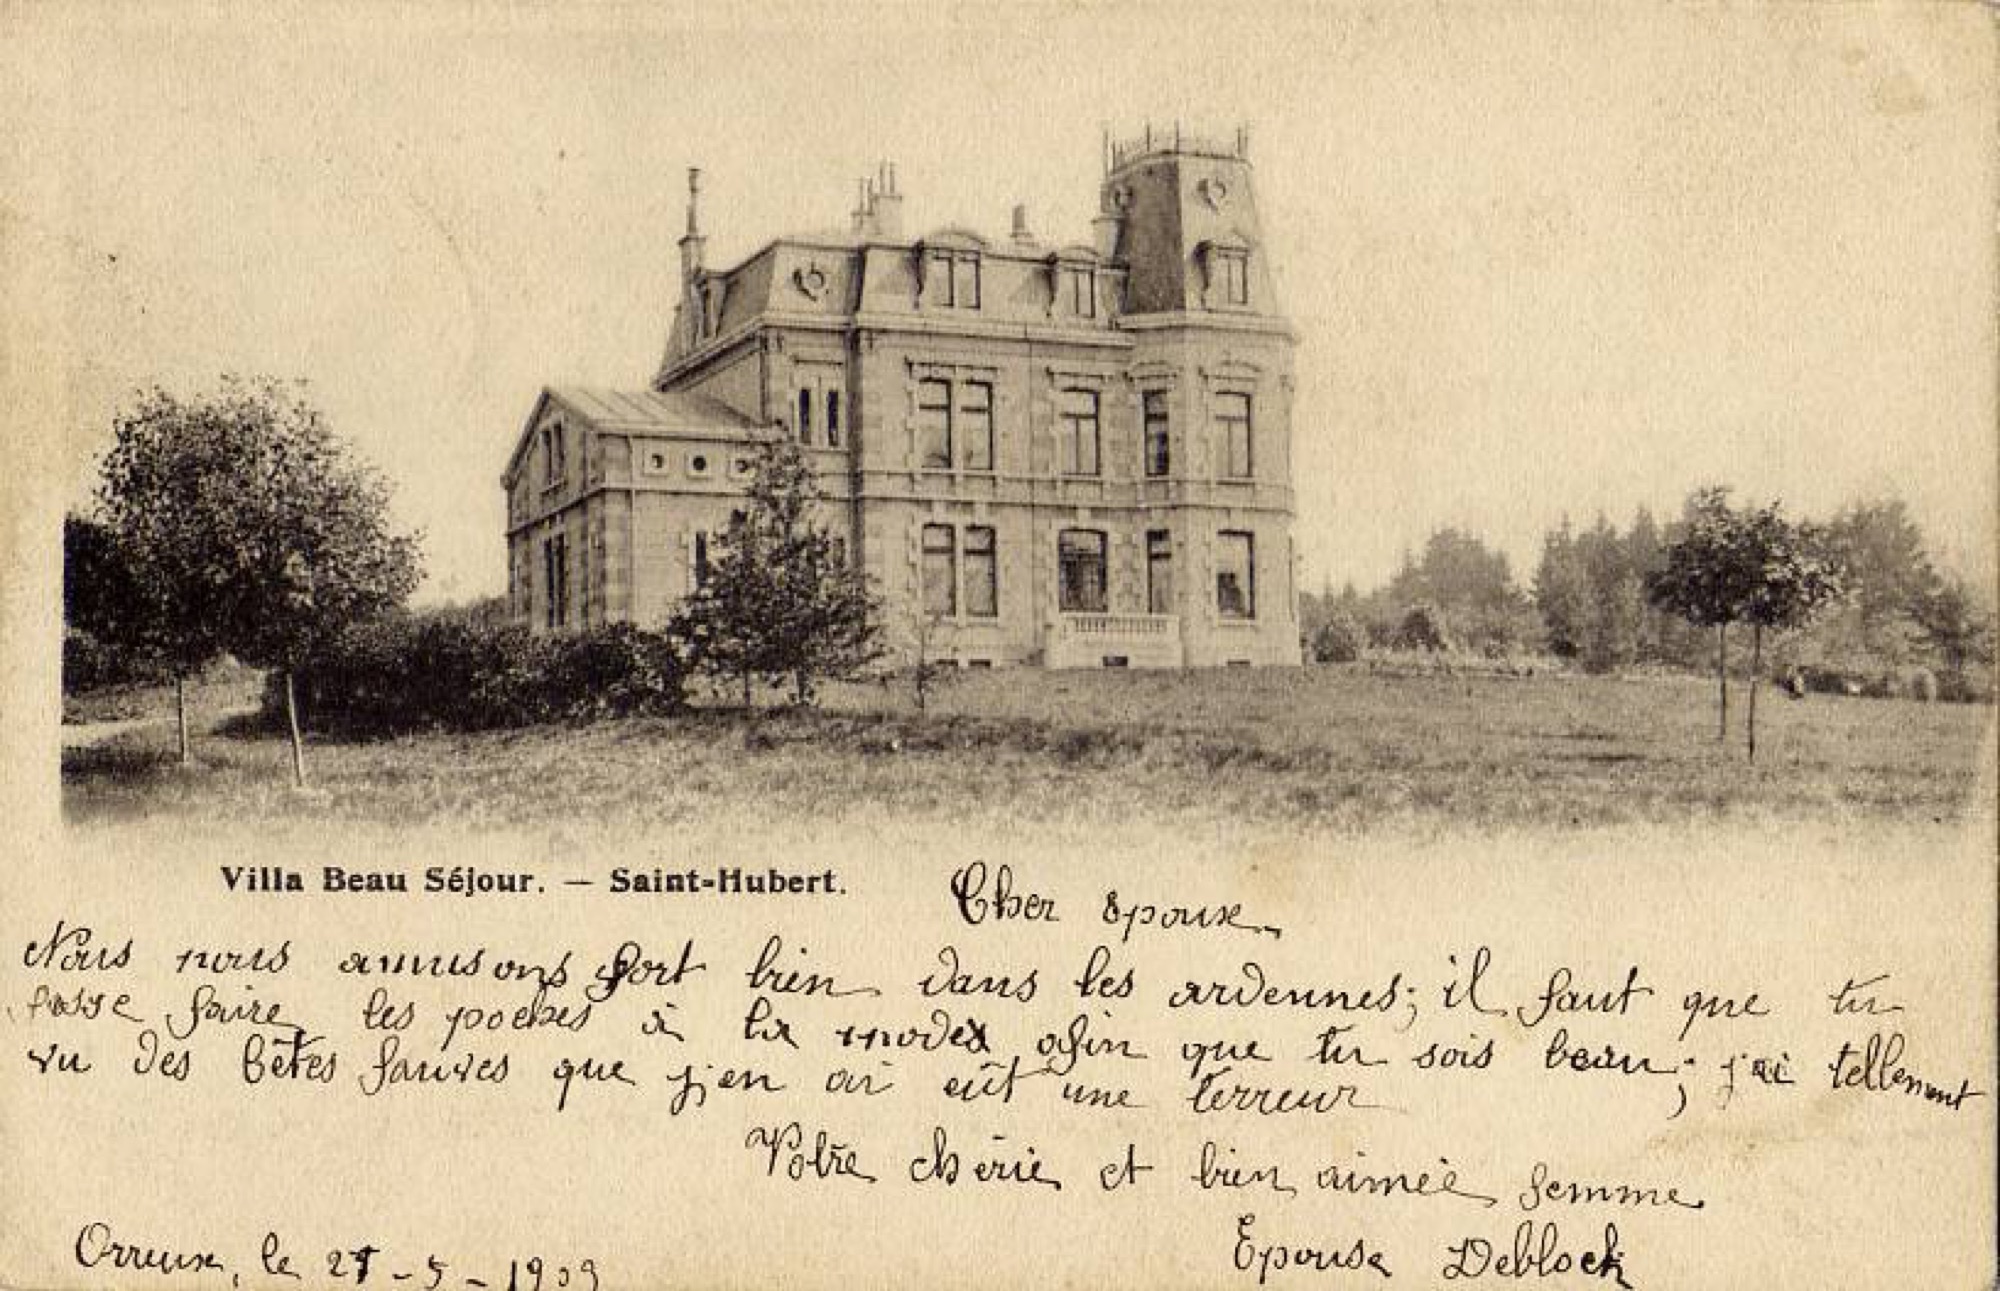 Villa Beau Séjour. — Saint-Hubert.
Cher epouse
Nous nous amusons fort bien dans les ardennes; il faut que tu
fasse faire les poches à la mode afin que tu sois beau; j'ai tellement
vu des bêtes fauves que j'en ai eût une terreur
Votre chérie et bien aimée femme
Epouse Deblock
le 27-5-1909